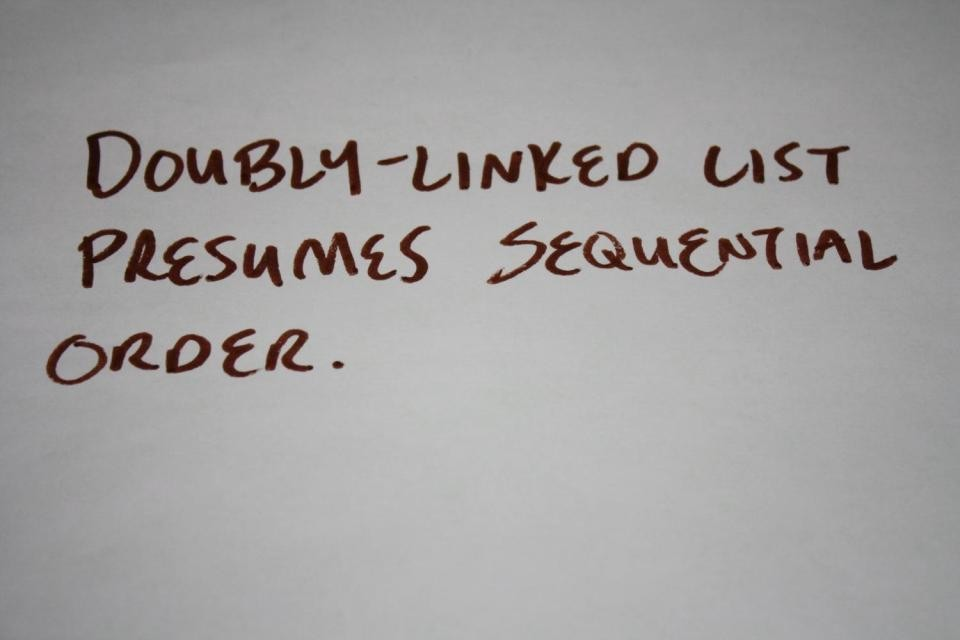 DOUBLY-LINKED LIST
PRESUMES SEQUENTIAL
ORDER.